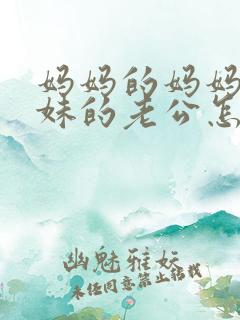 妈妈的妈妈
妹的老公怎
幽魅雅妘
未经同意禁止搭载